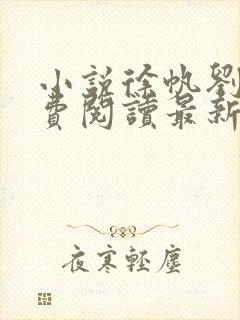 小說徐帆劉
費閱讀最新
夜寒輕塵